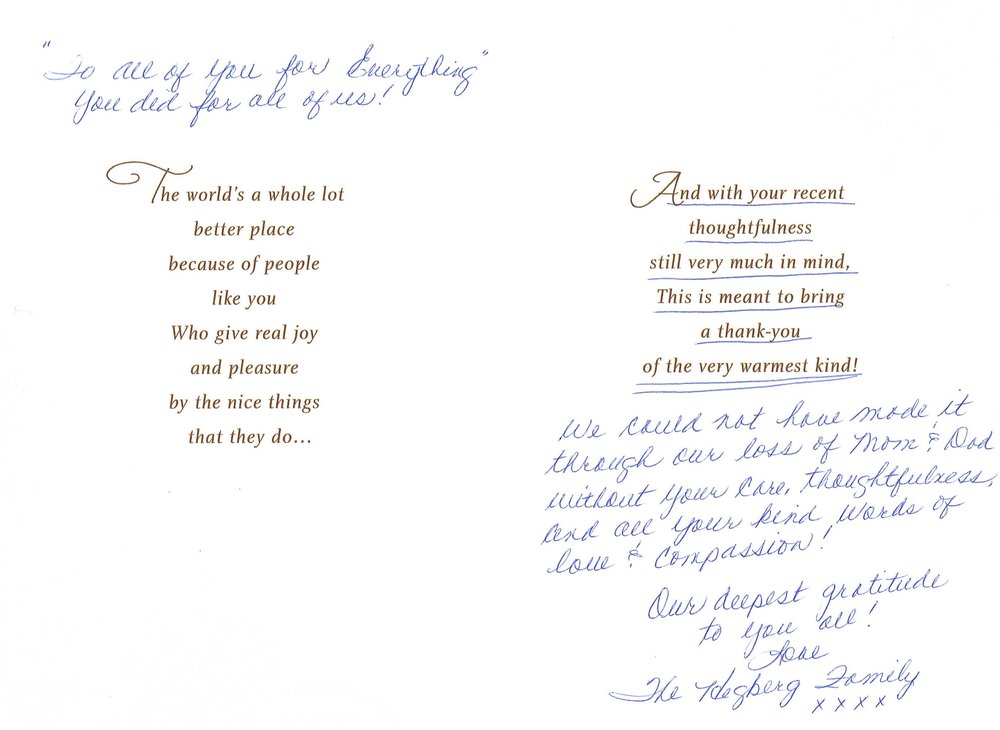 "To all of you for Everything"
You did for all of us!
The world's a whole lot
better place
because of people
like you
Who give real joy
and pleasure
by the nice things
that they do...
And with your recent
thoughtfulness
still very much in mind,
This is meant to bring
a thank-you
of the very warmest kind!
We could not have made it
through our loss of Mom & Dad
without your care, thoughtfulness,
and all your kind words of
love & compassion!
Our deepest gratitude
to you all!
Love
The Hegberg Family
xxxx